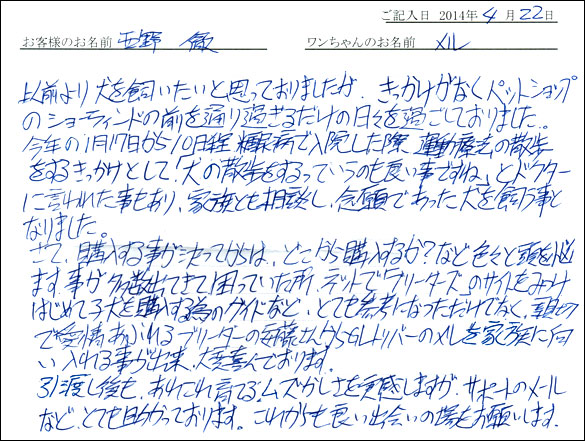 ご記入日 2014年 4 月 22 日
お客様のお名前 西野 徹 ワンちゃんのお名前 メル
以前より犬を飼いたいと思っておりましたが、きっかけがなくペットショップ
のショーウィンドの前を通り過ぎるだけの日々を過ごしておりました。
今年の1月17日から10日程 糖尿病で入院した際、運動療法の散歩
をするきっかけとして「犬の散歩をするっていうのも良い事ですね」とドクター
に言われた事もあり、家族とも相談し、念願であった犬を飼う事と
なりました。
さて、購入する事が決ってからは、どこから購入するか?など色々と頭を悩
ます事が多数出てきて困っていた所、ネットで「ブリーダーズ」のサイトをみつけ
はじめて子犬を購入する為のガイドなど、とても参考になっただけでなく、
で愛情あふれるブリーダーの安藤さんからGレトリバーのメルを家族に向
い入れる事が出来、大変喜んでおります。
引渡し後も、あれこれ育てるムズかしさを実感しますが、サポートのメール
など、とても助かっております。これからも良い出会いの場をお願いします。